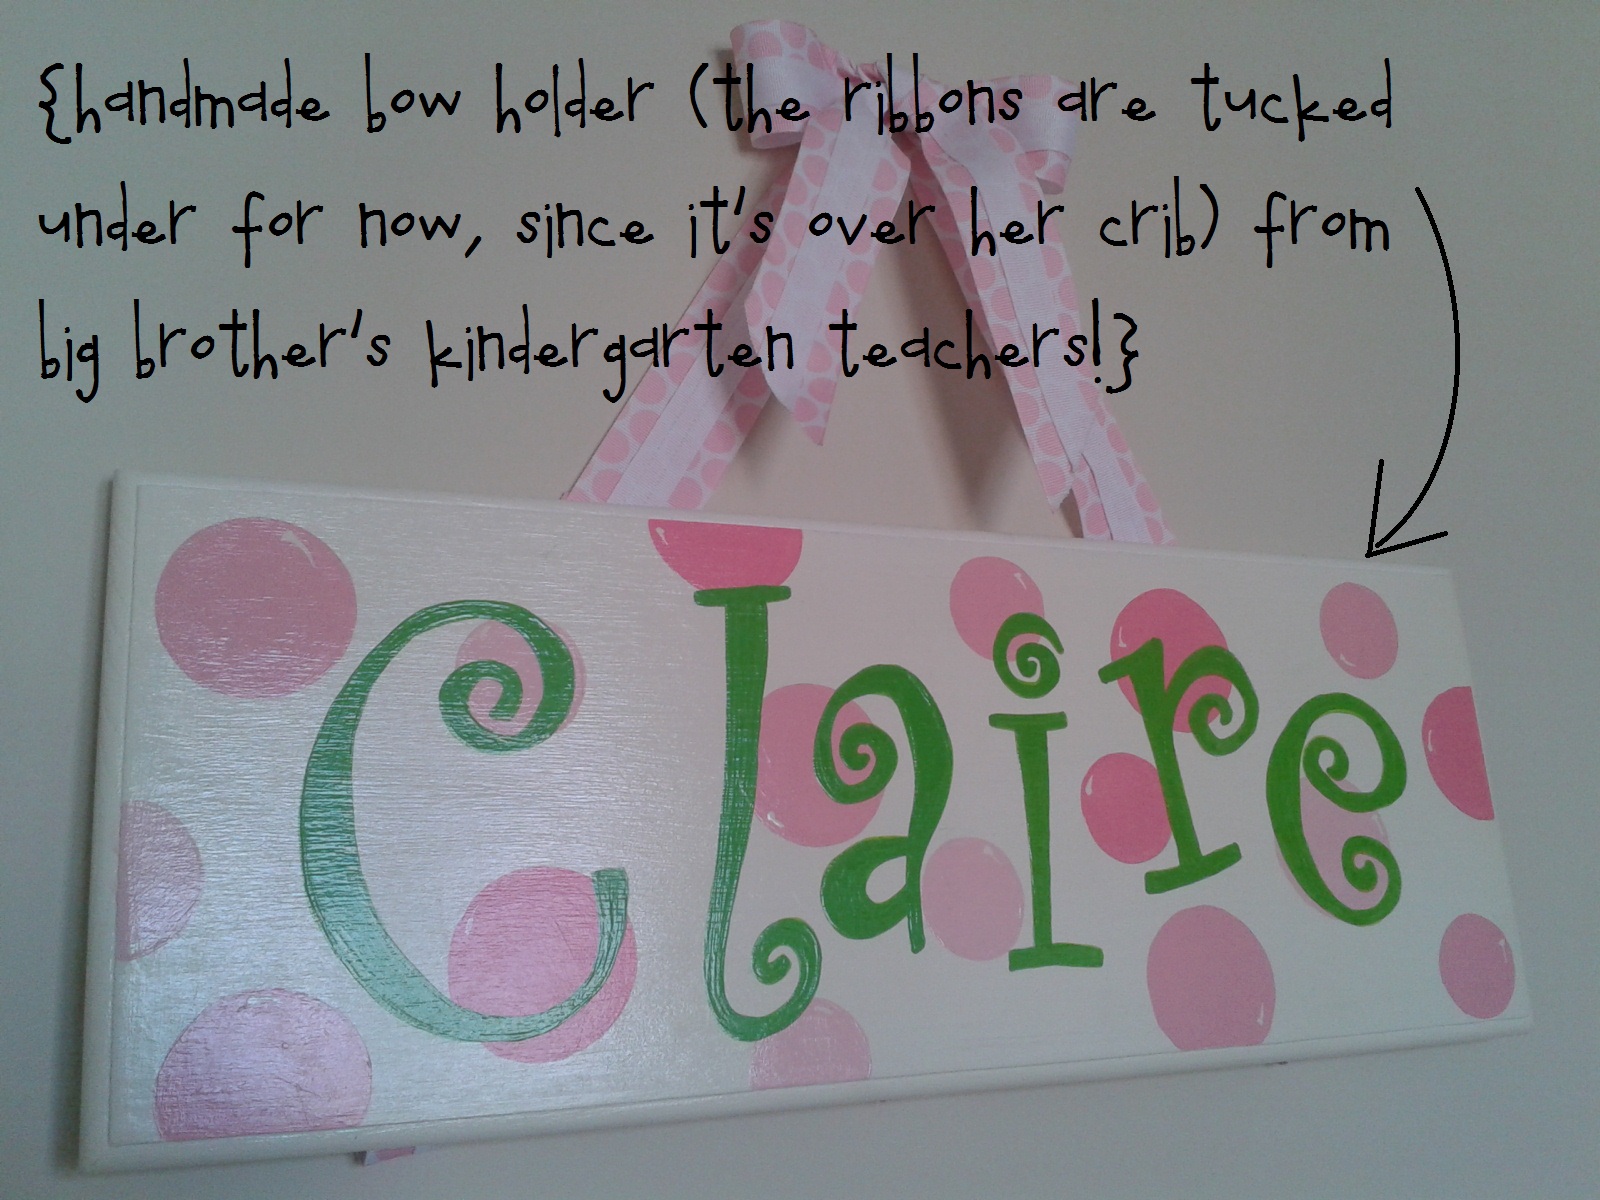 {handmade bow holder (the ribbons are tucked
under for now, since it's over her crib) from
big brother's kindergarten teachers!}
Claire